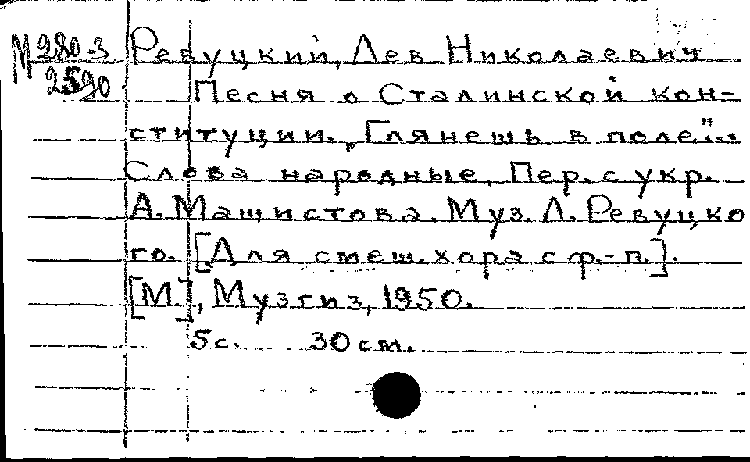 М 280-3 Ревуцкий, Лев Николаевич
2590 Песня о Сталинской кон-
ституции. „Глянешь в поле"...
Слова народные, Пер. с укр.
А. Машистова. Муз. Л. Ревуцко
го. [Для смеш. хора с ф.-п.].
[М], Музгиз, 1950.
5 с. 30 см.